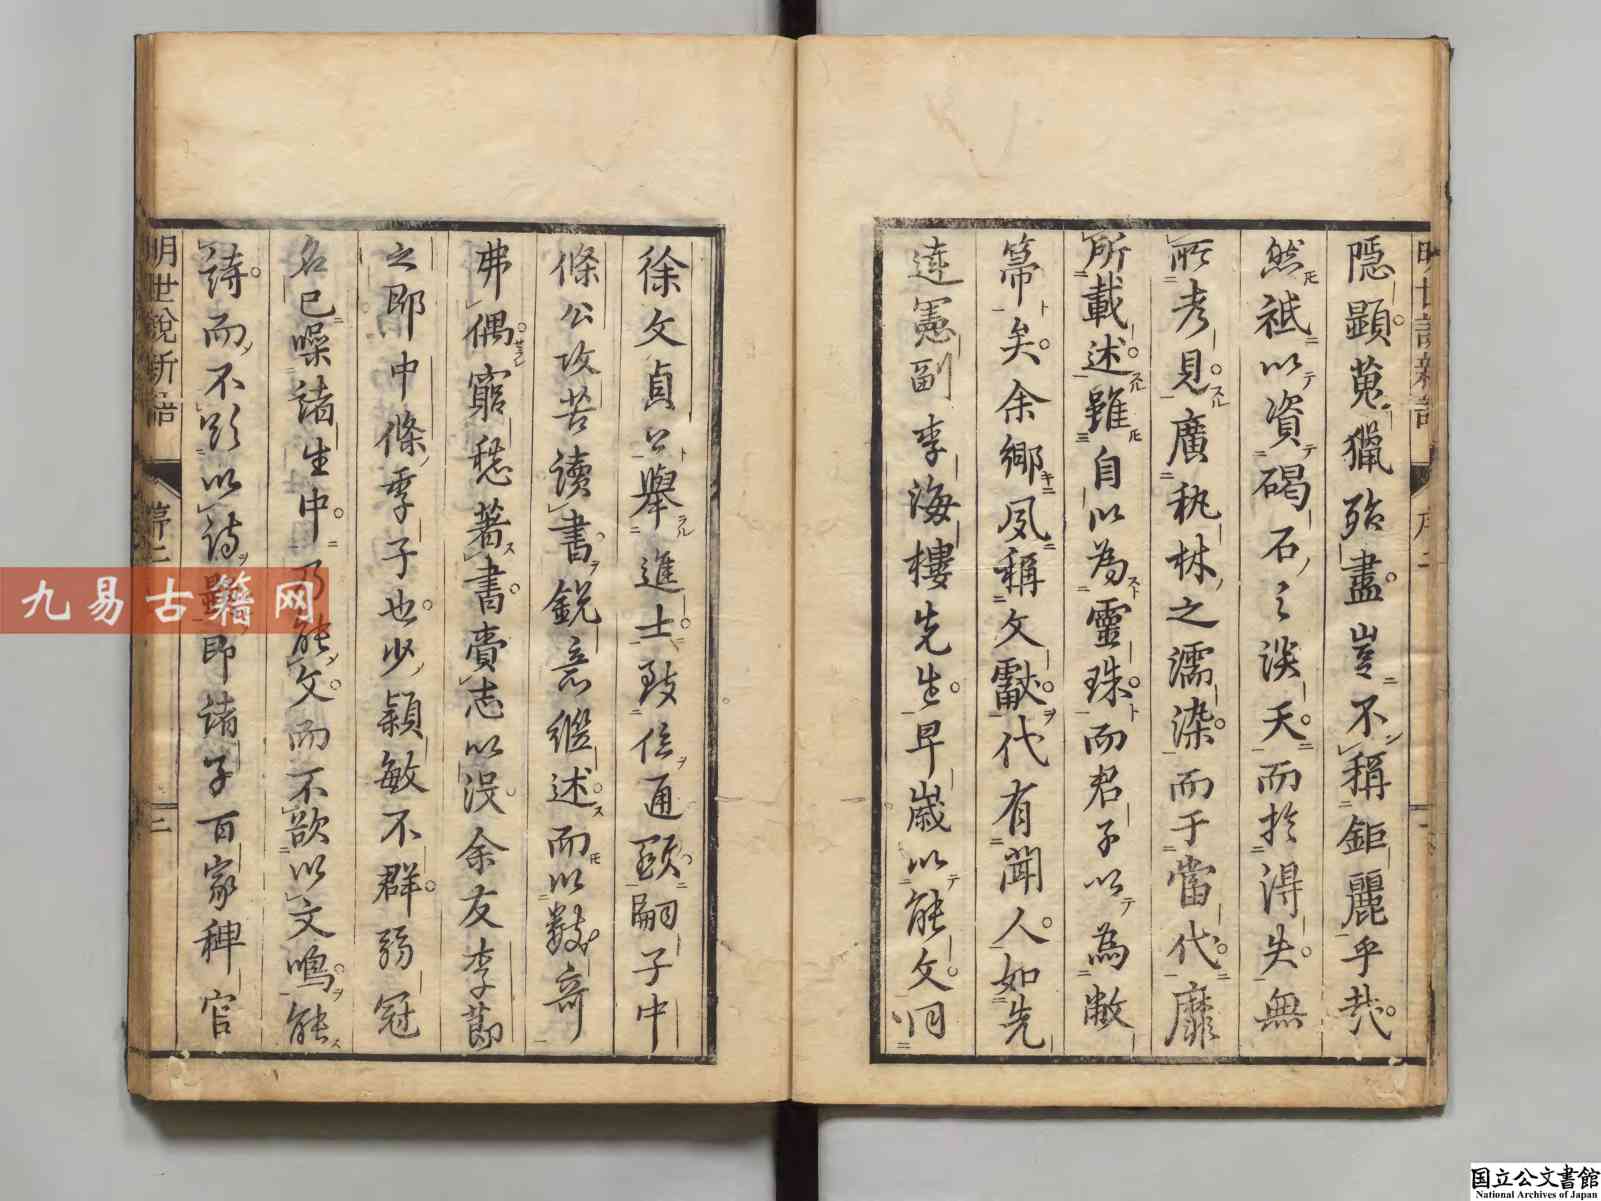 隱顯蒐獵殆盡豈不稱鉅麗乎哉
然祗以資碣石之談天而於得失無
所考見廣秇林之濡染而于當代靡
所載述雖自以為靈珠而君子以為敝
帚矣余鄉夙稱文獻代有聞人如先
達憲副李海樓先生早歲以能文同
徐文貞公舉進士致位通顯嗣子中
條公攻苦讀書銳意繼述而以數奇
弗偶窮愁著書賫志以沒余友李節
之即中條季子也少穎敏不群弱冠
名已噪諸生中乃能文而不欲以文鳴能
詩而不欲以詩顯即諸子百家稗官
明世說新語
序二
二
九易古籍网
国立公文書館
National Archives of Japan